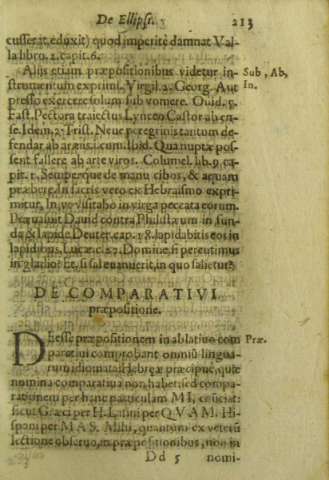 De Ellipsi. 213
cusserat, eduxit) quod imperitè damnat Val-
la libro. 2. capit. 6.
Aliis etiam præpositionibus videtur in- Sub, Ab,
strumentum exprimi. Virgil. 2. Georg. Aut In.
presso exercere solum sub vomere. Ouid. 5.
Fast. Pectora traiectus Lynceo Castor ab en-
se. Idem. 2. Trist. Neue peregrinis tantum de-
fendar ab armis. Ibid. Qua nuptæ pos-
sent fallere ab arte viros. Columel. lib. 9. ca-
pit. 1. Semperque de manu cibos, & aquam
præbere. In sacris vero ex Hebraismo expri-
mitur, In, vt visitabo in virga peccata eorum.
Præualuit Dauid contra Philistæum in fun-
da & lapide Deuter. cap. 18. lapidabitis eos in
lapidibus. Lucæ. c. 22. Domine, si percutimus
in gladio? Et, si sal euanuerit, in quo salietur?
DE COMPARATIVI
præpositione.
DEesse præpositionem in ablatiuo com Præ.
paratiui comprobant omniũ lingua-
rum idiomata: Hebreæ præcipuè, quæ
nomina comparatiua non habet: sed compa-
rationem per hanc particulam MI, cõficiat:
sicut Græci per H. Latini per QVAM. Hi-
spani per MAS. Mihi, quantum ex veterũ
lectione obseruo, in præpositionibus, non in
Dd 5 nomi-